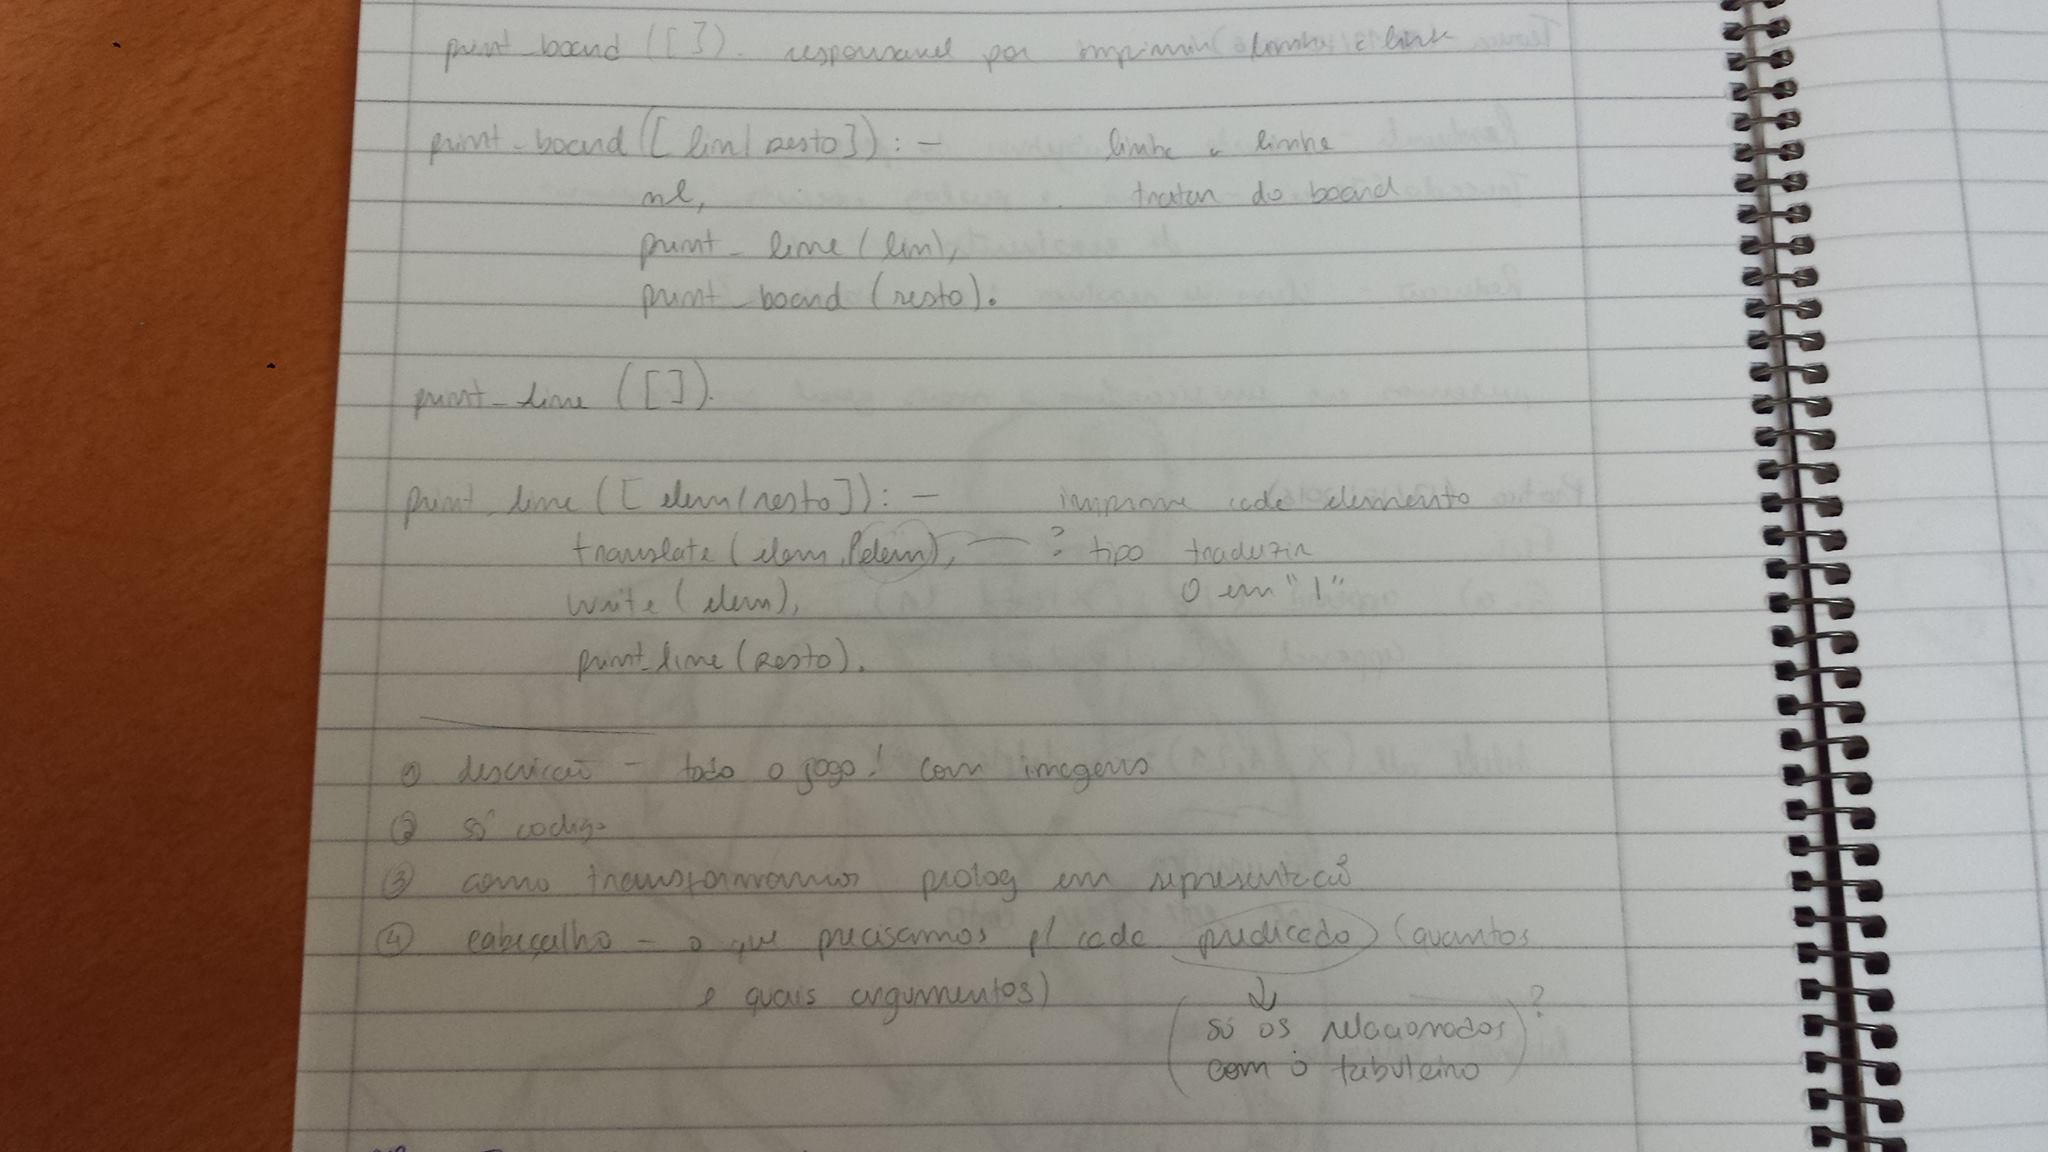 print_board ([ ]). responsavel por imprimir linha a linha
print_board ([ lin | Resto ]) : - linha a linha
nl, tratar do board
print_line (lin),
print_board (resto).
print_line ([ ]).
print_line ([ elem | resto ]) : - imprime cada elemento
translate (elem, Pelem), ? tipo traduzir
write (elem), 0 em "1"
print_line (Resto).
① descrição - todo o jogo! com imagens
② só codigo
③ como transformamos prolog em representação
④ cabeçalho - o que precisamos p/ cada predicado (quantos
e quais argumentos)
(só os relacionados ?
com o tabuleiro)